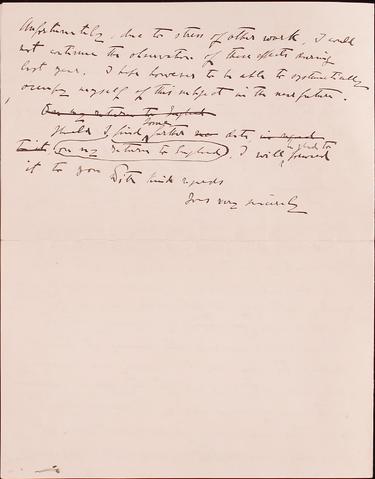 Unfortunately, due to stress of other work, I could
not continue the observation of these effects during
last year. I hope however to be able to systematically
occupy myself of this subject in the near future.
On my return to England
Should I find some further data in regard
to it on my return to England, I will forward
it to you With kind regards
Yours very sincerely